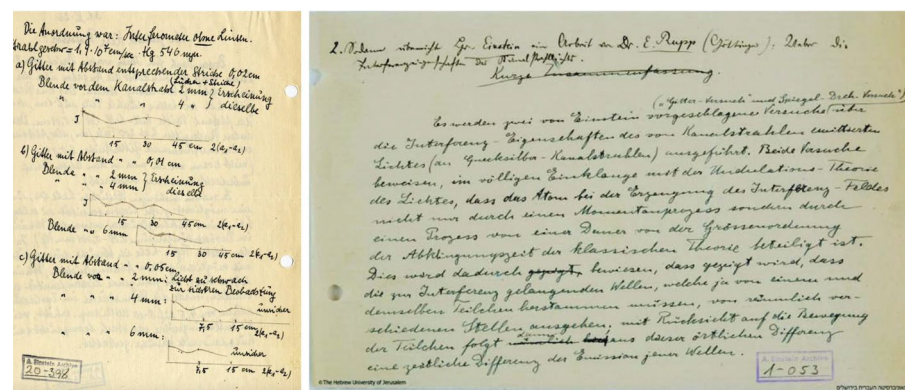 Die Anordnung war: Interferometer ohne Linsen.
Strahlgeschw = 1,9·10⁷ cm/sec. Hg 546 mμ.
a) Gitter mit Abstand entsprechender Striche 0,02 cm
(Lücken + Striche)
Blende vor dem Kanalstrahl 2 mm } Erscheinung
" " " 4 " } dieselbe
J
15 30 45 cm 2(a₁-a₂)
b) Gitter mit Abstand " " 0,01 cm
Blende " " 2 mm } Erscheinung
" " 4 mm } dieselbe
J
15 30 45 cm 2(e₁-e₂)
Blende " " 6 mm
15 30 45 cm 2(e₁-e₂)
c) Gitter mit Abstand " " 0,05 cm
Blende vor " " 2 mm: Licht zu schwach
zur sicheren Beobachtung
" " " 4 mm: unsicher
7,5 15 cm 2(e₁-e₂)
6 mm: unsicher
7,5 15 cm 2(e₁-e₂)
A. Einstein Archive
20-398
2. Sodann überreicht Hr. Einstein eine Arbeit von Dr. E. Rupp (Göttingen): Ueber die
Interferenzeigenschaften des Kanalstrahllichtes.
Kurze Zusammenfassung.
("Gitter-Versuch" und Spiegel-Dreh-Versuch")
Es werden zwei von Einstein vorgeschlagene Versuche über
die Interferenz-Eigenschaften des von Kanalstrahlen emittierten
Lichtes (an Quecksilber-Kanalstrahlen) ausgeführt. Beide Versuche
beweisen, im völligen Einklange mit der Undulations-Theorie
des Lichtes, dass das Atom bei der Erzeugung des Interferenz-Feldes
nicht nur durch einen Momentanprozess sondern durch
einen Prozess von einer Dauer von der Grössenordnung
der Abklingungszeit der klassischen Theorie beteiligt ist.
Dies wird dadurch gezeigt, bewiesen, dass gezeigt wird, dass
die zur Interferenz gelangenden Wellen, welche ja von einem und
demselben Teilchen herstammen müssen, von räumlich ver-
schiedenen Stellen ausgehen; mit Rücksicht auf die Bewegung
der Teilchen folgt dann aus dieser örtlichen Differenz
eine zeitliche Differenz der Emission jener Wellen.
A. Einstein Archive
1-053
© The Hebrew University of Jerusalem
האוניברסיטה העברית בירושלים